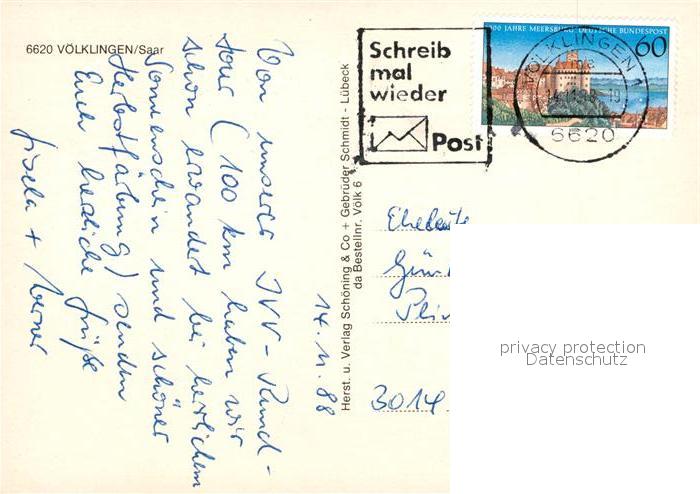 6620 VÖLKLINGEN/Saar
14. 11. 88
Von unserer IVV-Rund-
tour (100 km haben wir
schon erwandert bei herrlichem
Sonnenschein und schöner
Herbstfärbung) senden
Euch herzliche Grüße
Gisela + Werner
Herst. u. Verlag Schöning & Co + Gebrüder Schmidt - Lübeck
da Bestellnr. Völk 6
Schreib
mal
wieder
Post
1000 JAHRE MEERSBURG DEUTSCHE BUNDESPOST
60
VÖLKLINGEN 1
6620
Eheleute
3014
privacy protection
Datenschutz